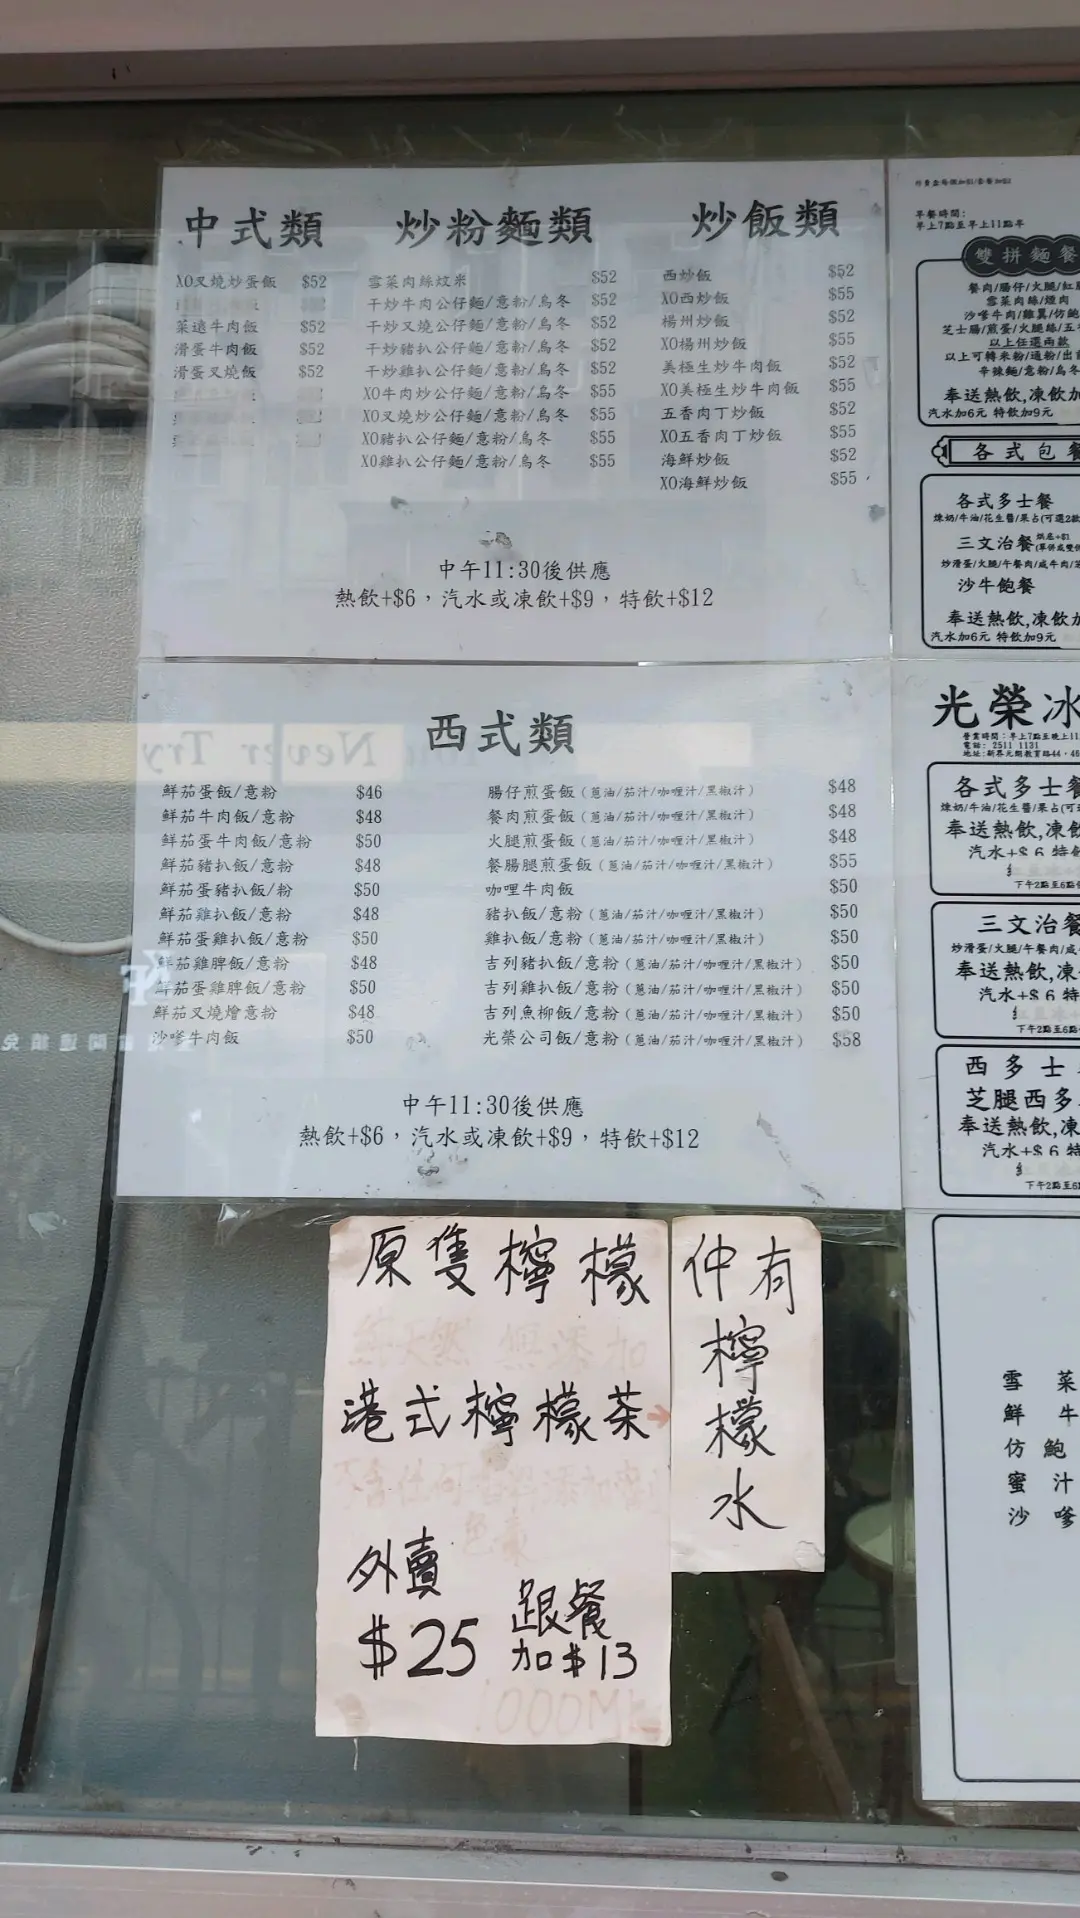 中式類
XO叉燒炒蛋飯 $52
菜遠牛肉飯 $52
滑蛋牛肉飯 $52
滑蛋叉燒飯 $52
炒粉麵類
雪菜肉絲炆米 $52
干炒牛肉公仔麵/意粉/烏冬 $52
干炒叉燒公仔麵/意粉/烏冬 $52
干炒豬扒公仔麵/意粉/烏冬 $52
干炒雞扒公仔麵/意粉/烏冬 $52
XO牛肉炒公仔麵/意粉/烏冬 $55
XO叉燒炒公仔麵/意粉/烏冬 $55
XO豬扒公仔麵/意粉/烏冬 $55
XO雞扒公仔麵/意粉/烏冬 $55
炒飯類
西炒飯 $52
XO西炒飯 $55
楊州炒飯 $52
XO楊州炒飯 $55
美極生炒牛肉飯 $52
XO美極生炒牛肉飯 $55
五香肉丁炒飯 $52
XO五香肉丁炒飯 $55
海鮮炒飯 $52
XO海鮮炒飯 $55
中午11:30後供應
熱飲+$6,汽水或凍飲+$9,特飲+$12
西式類
鮮茄蛋飯/意粉 $46
鮮茄牛肉飯/意粉 $48
鮮茄蛋牛肉飯/意粉 $50
鮮茄豬扒飯/意粉 $48
鮮茄蛋豬扒飯/粉 $50
鮮茄雞扒飯/意粉 $48
鮮茄蛋雞扒飯/意粉 $50
鮮茄雞脾飯/意粉 $48
鮮茄蛋雞脾飯/意粉 $50
鮮茄叉燒燴意粉 $48
沙嗲牛肉飯 $50
腸仔煎蛋飯(蔥油/茄汁/咖喱汁/黑椒汁) $48
餐肉煎蛋飯(蔥油/茄汁/咖喱汁/黑椒汁) $48
火腿煎蛋飯(蔥油/茄汁/咖喱汁/黑椒汁) $48
餐腸腿煎蛋飯(蔥油/茄汁/咖喱汁/黑椒汁) $55
咖哩牛肉飯 $50
豬扒飯/意粉(蔥油/茄汁/咖喱汁/黑椒汁) $50
雞扒飯/意粉(蔥油/茄汁/咖喱汁/黑椒汁) $50
吉列豬扒飯/意粉(蔥油/茄汁/咖喱汁/黑椒汁) $50
吉列雞扒飯/意粉(蔥油/茄汁/咖喱汁/黑椒汁) $50
吉列魚柳飯/意粉(蔥油/茄汁/咖喱汁/黑椒汁) $50
光榮公司飯/意粉(蔥油/茄汁/咖喱汁/黑椒汁) $58
中午11:30後供應
熱飲+$6,汽水或凍飲+$9,特飲+$12
原隻檸檬
純天然 無添加
港式檸檬茶
外賣
$25
跟餐
加$13
仲有
檸檬水
早餐時間:
早上7點至早上11點半
雙拼麵餐
餐肉/腸仔/火腿/紅
雪菜肉絲/煙肉
沙嗲牛肉/雞翼/仿鮑
芝士腸/煎蛋/火腿絲/五
以上任選兩款
以上可轉米粉/通粉/出
辛辣麵/意粉/烏冬
奉送熱飲,凍飲加
汽水加6元 特飲加9元
各式包餐
各式多士餐
煉奶/牛油/花生醬/果占(可選2款
三文治餐 烘底+$1
炒滑蛋/火腿/午餐肉/咸牛肉
沙牛飽餐
奉送熱飲,凍飲加
汽水加6元 特飲加9元
光榮冰
營業時間:早上7點至晚上11
電話: 2511 1131
各式多士餐
煉奶/牛油/花生醬/果占(可
奉送熱飲,凍飲
汽水+$6 特
下午2點至6點
三文治餐
炒滑蛋/火腿/午餐肉/咸
奉送熱飲,凍
汽水+$6 特
下午2點至6點
西多士
芝腿西多
奉送熱飲,凍
汽水+$6 特
下午2點至6
雪菜
鮮牛
仿鮑
蜜汁
沙嗲